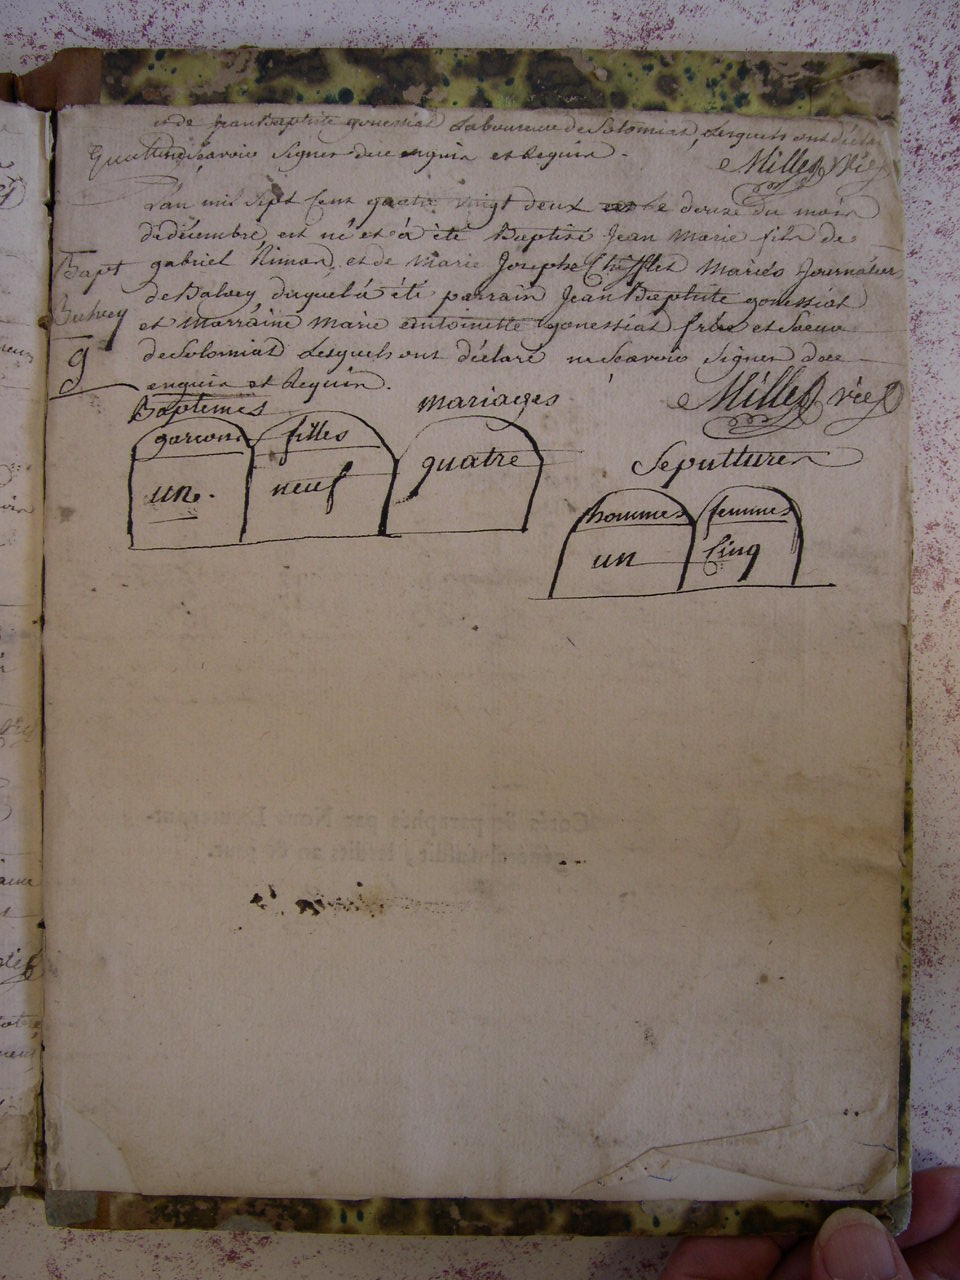 et de Jean Baptiste gonessiat Laboureur de Solomiat, Lesquels ont déclaré
ne Scavoir Signer de ce enquis et Requis.
Millet vic.
L'an mil Sept Cent quatre vingt deux et le douze du mois
de décembre est né et a été Baptisé Jean Marie fils de
Bapt
gabriel et de Marie Josephe Chifflet Mariés Journaliers
de Balvey duquel a été parrain Jean Baptiste gonessiat
et Marraine Marie antoinette gonessiat frère et Soeur
9
de Solomiat Lesquels ont déclaré ne Scavoir Signer de ce
enquis et Requis.
Millet vic.
Baptemes
mariages
garcons
filles
un.
neuf
quatre
Sepultures
hommes
femmes
un
Cinq
Cotés & paraphés par Nous Lieutenant-
général susdit, lesdits an & jour.